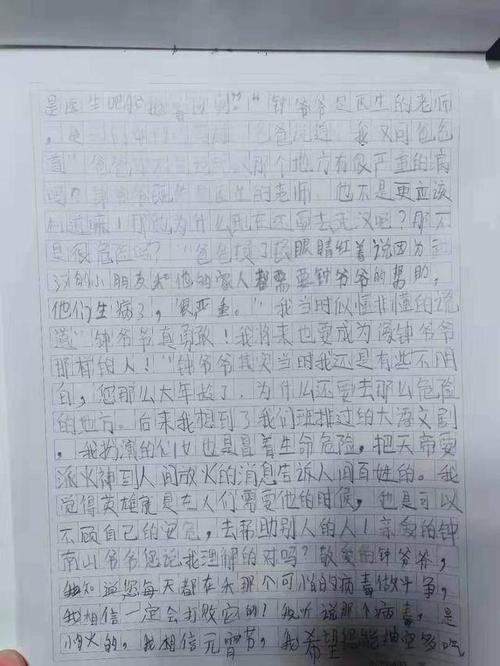 是医生吧?""钟爷爷是医生的老师
,爸爸说道。我又问爸爸
道"爸爸那个地方有很严重的病
吗?钟爷爷既然是医生的老师,也不是更应该
知道嘛!那他为什么现在还要去武汉呢?那不
是很危险吗?"爸爸眼睛红着说因为武
汉的小朋友和他的家人都需要钟爷爷的帮助,
他们生病了,很严重。"我当时似懂非懂的说
道"钟爷爷真勇敢!我将来也要成为像钟爷爷
那样的人!"钟爷爷其实当时我还是有些不明
白,您那么大年龄了,为什么还要去那么危险
的地方。后来我想到了我们班排过的大语文剧
,我扮演的们也是冒着生命危险,把天帝要
派火神到人间放火的消息告诉人间百姓的。我
觉得英雄就是在人们需要他的时候,也是可以
不顾自己的安危,去帮助别人的人!亲爱的钟
南山爷爷您说我理解的对吗?敬爱的钟爷爷,
我知道您每天都在和那个可怕的病毒做斗争,
我相信一定会打败它的!我听说那个病毒,是
怕火的,我相信元宵节,我希望您能抽空多吃